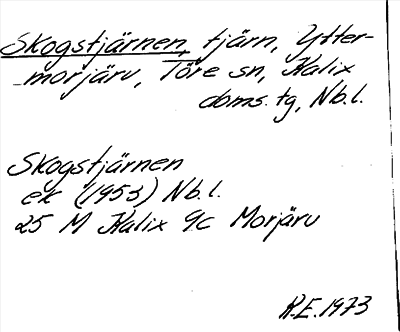 Skogstjärnen, tjärn, Ytter-
morjärv, Töre sn, Kalix
doms. tg, Nb.l.
Skogstjärnen
ek (1953) Nb.l.
25 M Kalix 9c Morjärv
R.E. 1973